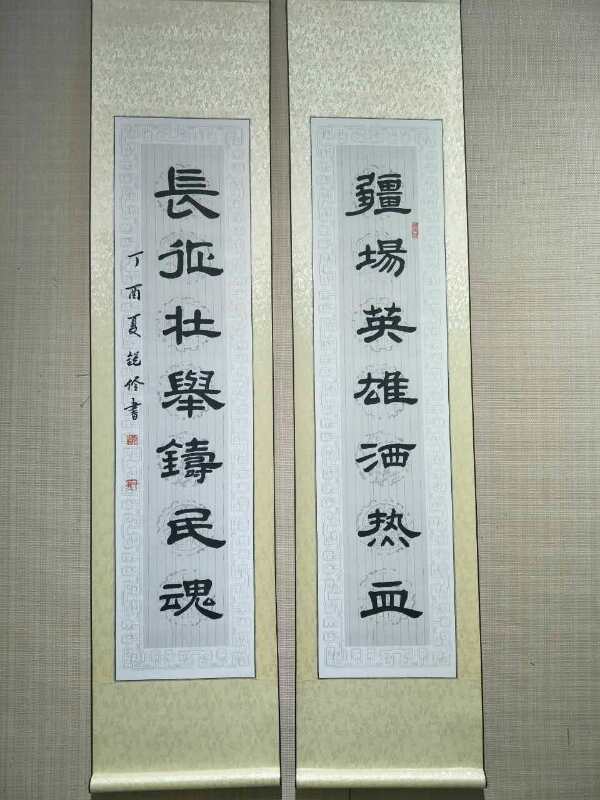 疆場英雄洒热血
長征壯舉鑄民魂
丁酉夏 書